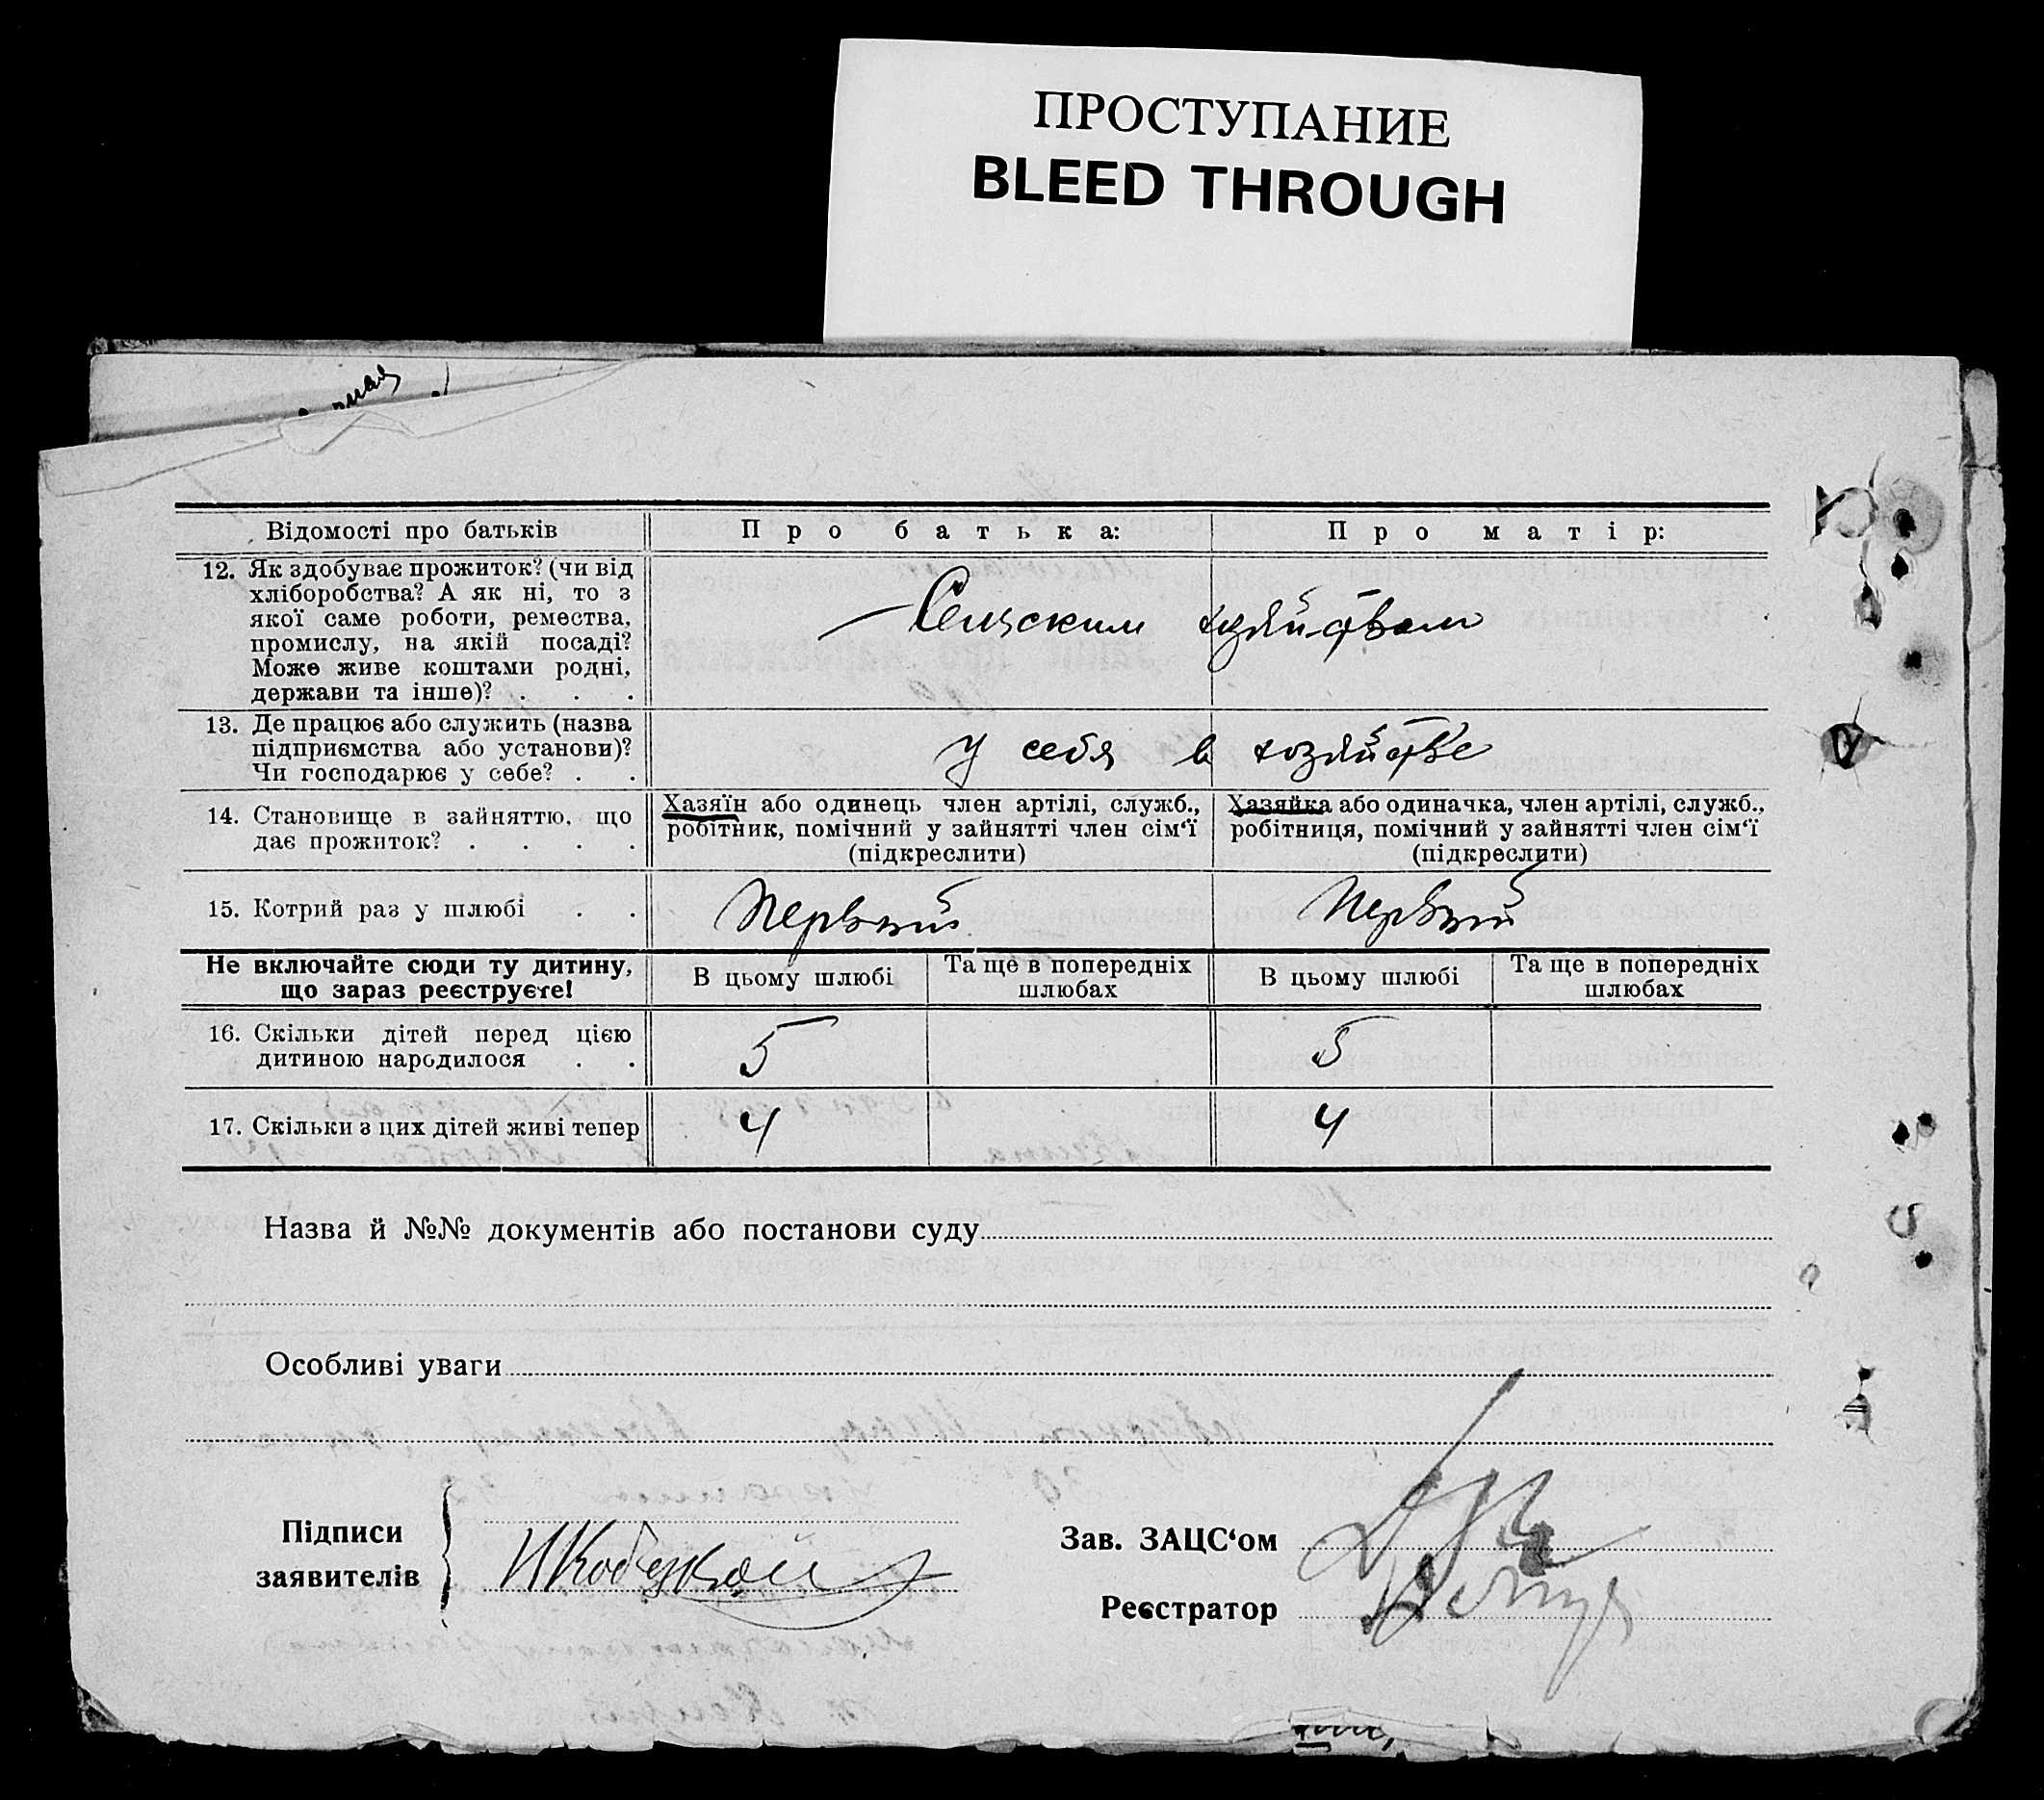 ПРОСТУПАНИЕ
BLEED THROUGH
Відомості про батьків
Про батька:
Про матір:
12. Як здобуває прожиток? (чи від
хліборобства? А як ні, то з
якої саме роботи, ремества,
промислу, на якій посаді?
Може живе коштами родні,
держави та інше)? . . .
Сельским хозяйством
13. Де працює або служить (назва
підприємства або установи)?
Чи господарює у себе? . .
у себя в хозяйстве
14. Становище в зайняттю, що
дає прожиток? . . . .
Хазяїн або одинець член артілі, служб.,
робітник, помічний у зайнятті член сім‘ї
(підкреслити)
Хазяйка або одиначка, член артілі, служб.,
робітниця, помічний у зайнятті член сім‘ї
(підкреслити)
15. Котрий раз у шлюбі . .
Первый
Первый
Не включайте сюди ту дитину,
що зараз реєструєте!
В цьому шлюбі
Та ще в попередніх
шлюбах
В цьому шлюбі
Та ще в попередніх
шлюбах
16. Скільки дітей перед цією
дитиною народилося . .
5
5
17. Скільки з цих дітей живі тепер
4
4
Назва й №№ документів або постанови суду
Особливі уваги
Підписи
заявителів
Зав. ЗАЦС‘ом
Реєстратор